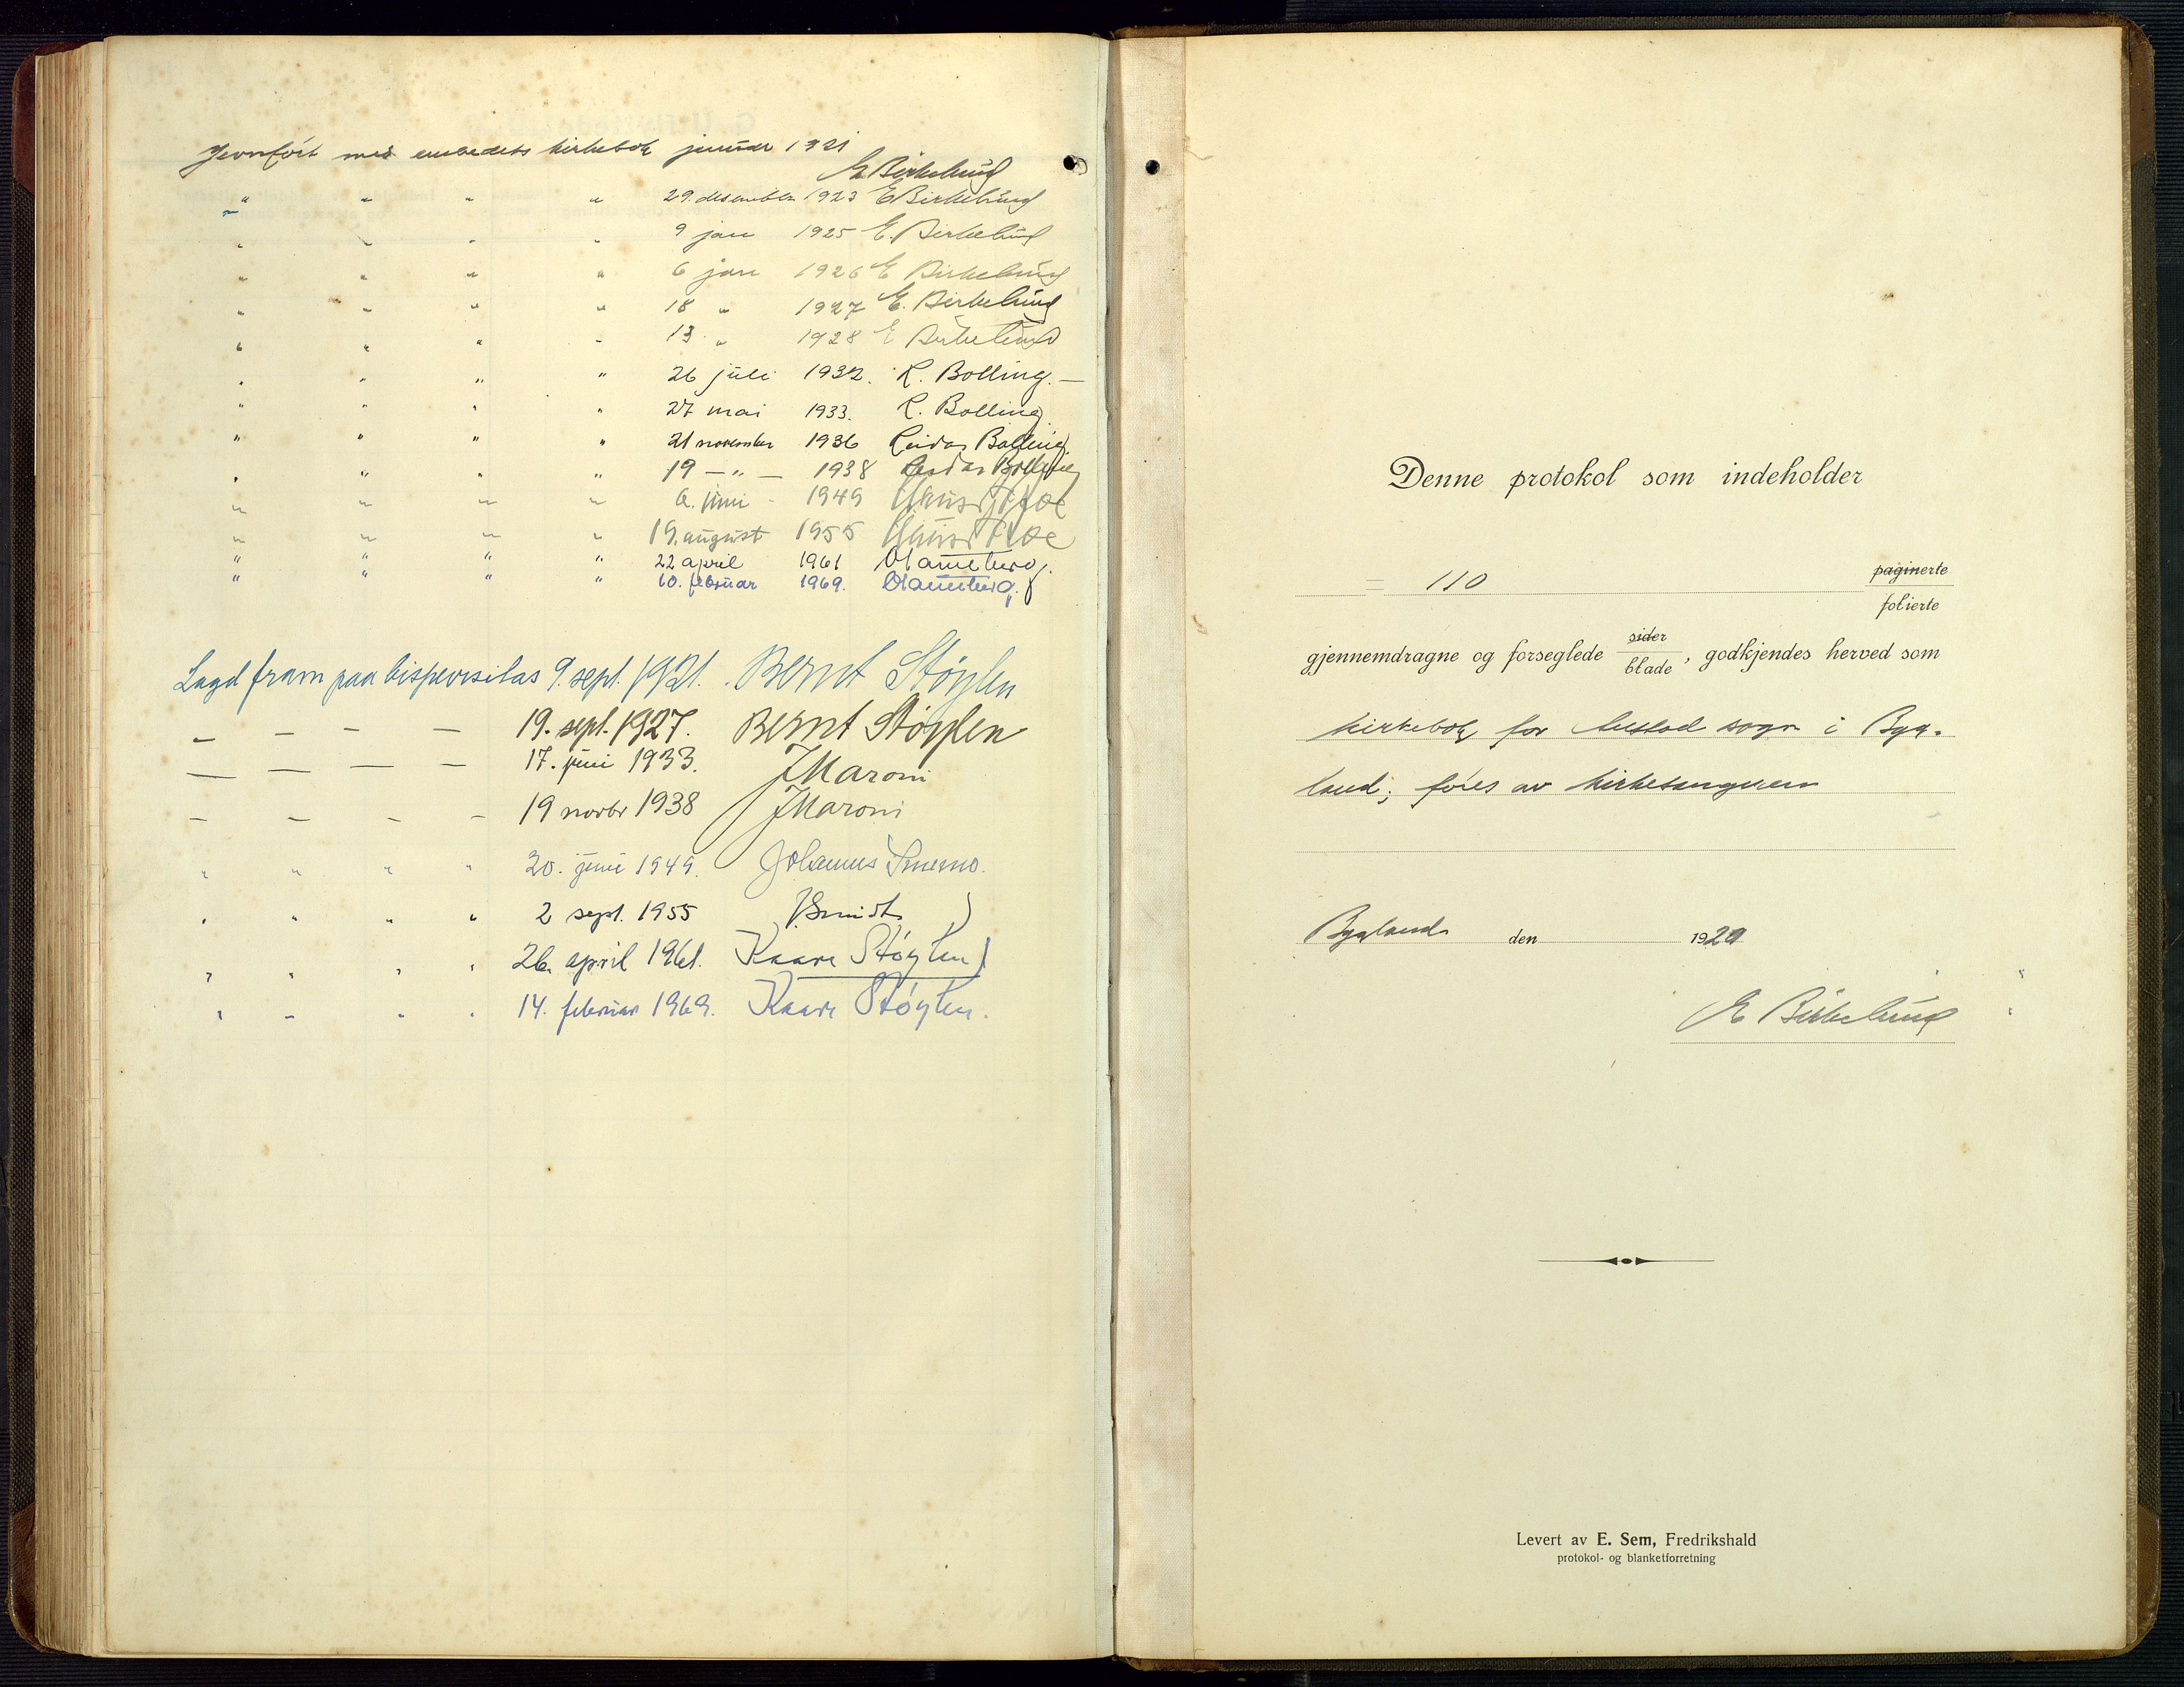 Jevnført med embedets kirkebok januar 1921
E Birkelund
" " " " 29. desember 1923 E Birkelund
" " " " 9 jan 1925 E. Birkelund
" " " " 6 jan 1926 E Birkelund
" " " " 18 " 1927 E. Birkelund
" " " " 13 " 1928 E Birkelund
" " " " 26 juli 1932. R. Bolling. —
" " " " 27 mai 1933. R. Bolling
" " " " 21 november 1936 Reidar Bolling
" " " " 19 — " — 1938 Reidar Bolling
" " " " 6. juni - 1949
" " " " 19. august 1955
" " " " 22 april 1961
" " " " 10. februar 1969.
Lagd fram paa bispevisitas 9. sept. 1921. Bernt Støylen
— — — — 19. sept. 1927. Bernt Støylen
— — — — 17. juni 1933. J Maroni
— — — — 19 novbr 1938 J Maroni
" " " " 20. juni 1949. Johannes Smemo.
" " " " 2 sept. 1955 J Smidt
" " " " 26. april 1961. Kaare Støylen
" " " " 14. februar 1969. Kaare Støylen.
Denne protokol som indeholder
= 110 paginerte
folierte
gjennemdragne og forseglede sider
blade, godkjendes herved som
kirkebok for Austad sogn i Byg-
land; føres av kirkesangeren
Bygland den 1920
E Birkelund
Levert av E. Sem, Fredrikshald
protokol- og blanketforretning